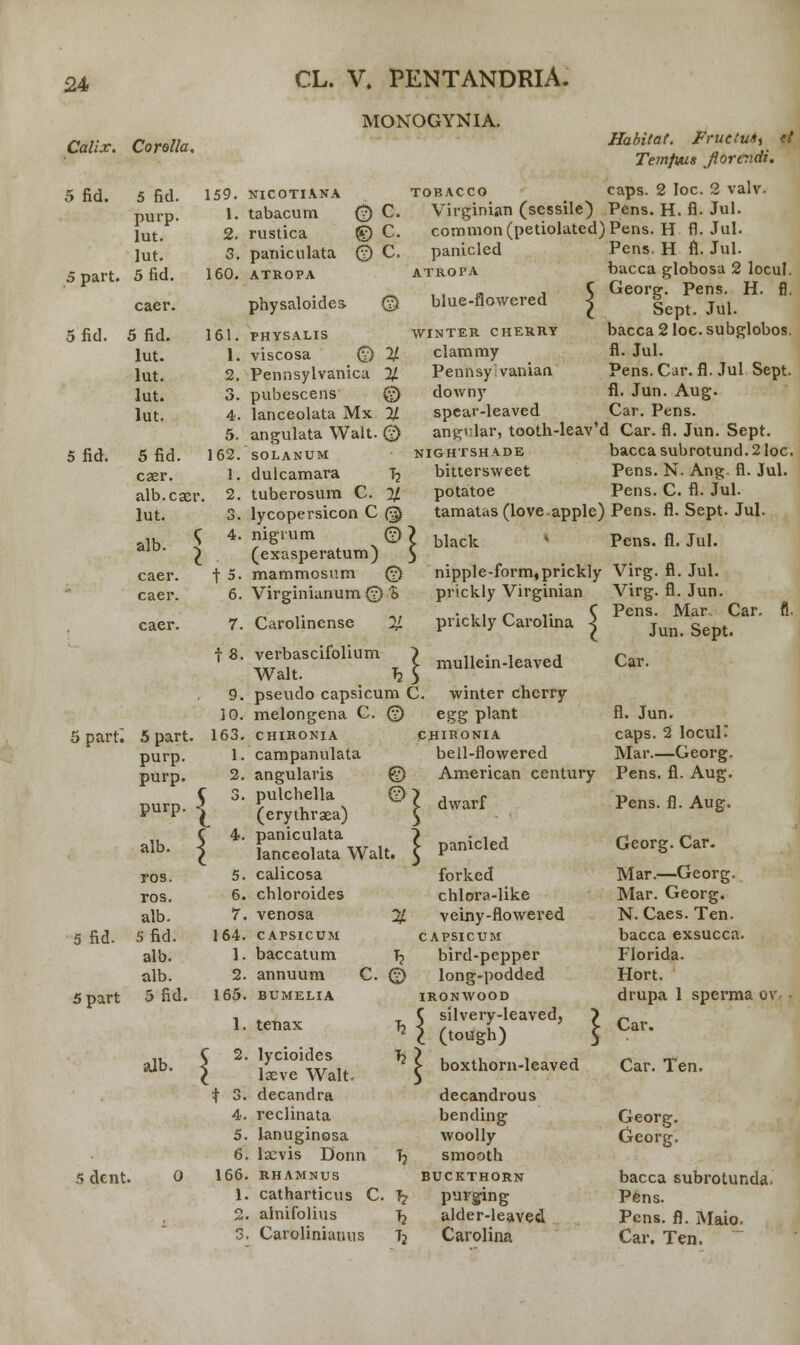 24 CL. V. PENTANDRIA.
MONOGYNIA.
Calix. Corolla. Habitat. Fructus, et
Tempus florendi.
5 fid. 5 fid. 159. NICOTIANA TOBACCO caps. 2 loc. 2 valv.
purp. 1. tabacum ⊙ C. Virginian (sessile) Pens. H. fl. Jul.
lut. 2. rustica ⊙ C. common (petiolated) Pens. H fl. Jul.
lut. 3. paniculata ⊙ C. panicled Pens. H fl. Jul.
5 part. 5 fid. 160. ATROPA ATROPA bacca globosa 2 locul.
caer. physaloides ⊙ blue-flowered { Georg. Pens. H. fl.
Sept. Jul.
5 fid. 5 fid. 161. PHYSALIS WINTER CHERRY bacca 2 loc. subglobos.
lut. 1. viscosa ⊙ ♃ clammy fl. Jul.
lut. 2. Pennsylvanica ♃ Pennsy vanian Pens. Car. fl. Jul Sept.
lut. 3. pubescens ⊙ downy fl. Jun. Aug.
lut. 4. lanceolata Mx ♃ spear-leaved Car. Pens.
5. angulata Walt. ⊙ angular, tooth-leav'd Car. fl. Jun. Sept.
5 fid. 5 fid. 162. SOLANUM NIGHTSHADE bacca subrotund. 2 loc.
cær. 1. dulcamara ♄ bittersweet Pens. N. Ang. fl. Jul.
alb. cær. 2. tuberosum C. ♃ potatoe Pens. C. fl. Jul.
lut. 3. lycopersicon C ⊙ tamatas (love apple) Pens. fl. Sept. Jul.
alb. { 4. nigrum ⊙ } black Pens. fl. Jul.
(exasperatum)
caer. † 5. mammosum ⊙ nipple-form, prickly Virg. fl. Jul.
caer. 6. Virginianum ⊙ ♄ prickly Virginian Virg. fl. Jun.
caer. 7. Carolinense ♃ prickly Carolina { Pens. Mar. Car. fl.
Jun. Sept.
† 8. verbascifolium } mullein-leaved Car.
Walt. ♄
9. pseudo capsicum C. winter cherry
10. melongena C. ⊙ egg plant fl. Jun.
5 part. 5 part. 163. CHIRONIA CHIRONIA caps. 2 locul.
purp. 1. campanulata bell-flowered Mar.—Georg.
purp. 2. angularis ⊙ American century Pens. fl. Aug.
purp. { 3. pulchella ⊙ } dwarf Pens. fl. Aug.
(erythræa)
alb. { 4. paniculata } panicled Georg. Car.
lanceolata Walt.
ros. 5. calicosa forked Mar.—Georg.
ros. 6. chloroides chlora-like Mar. Georg.
alb. 7. venosa ♃ veiny-flowered N. Caes. Ten.
5 fid. 5 fid. 164. CAPSICUM CAPSICUM bacca exsucca.
alb. 1. baccatum ♄ bird-pepper Florida.
alb. 2. annuum C. ⊙ long-podded Hort.
5 part 5 fid. 165. BUMELIA IRONWOOD drupa 1 sperma ov.
1. tenax ♄ { silvery-leaved, } Car.
(tough)
alb. { 2. lycioides ♄ } boxthorn-leaved Car. Ten.
læve Walt.
† 3. decandra decandrous
4. reclinata bending Georg.
5. lanuginosa woolly Georg.
6. lævis Donn ♄ smooth
5 dent. 0 166. RHAMNUS BUCKTHORN bacca subrotunda.
1. catharticus C. ♄ purging Pens.
2. alnifolius ♄ alder-leaved Pens. fl. Maio.
3. Carolinianus ♄ Carolina Car. Ten.